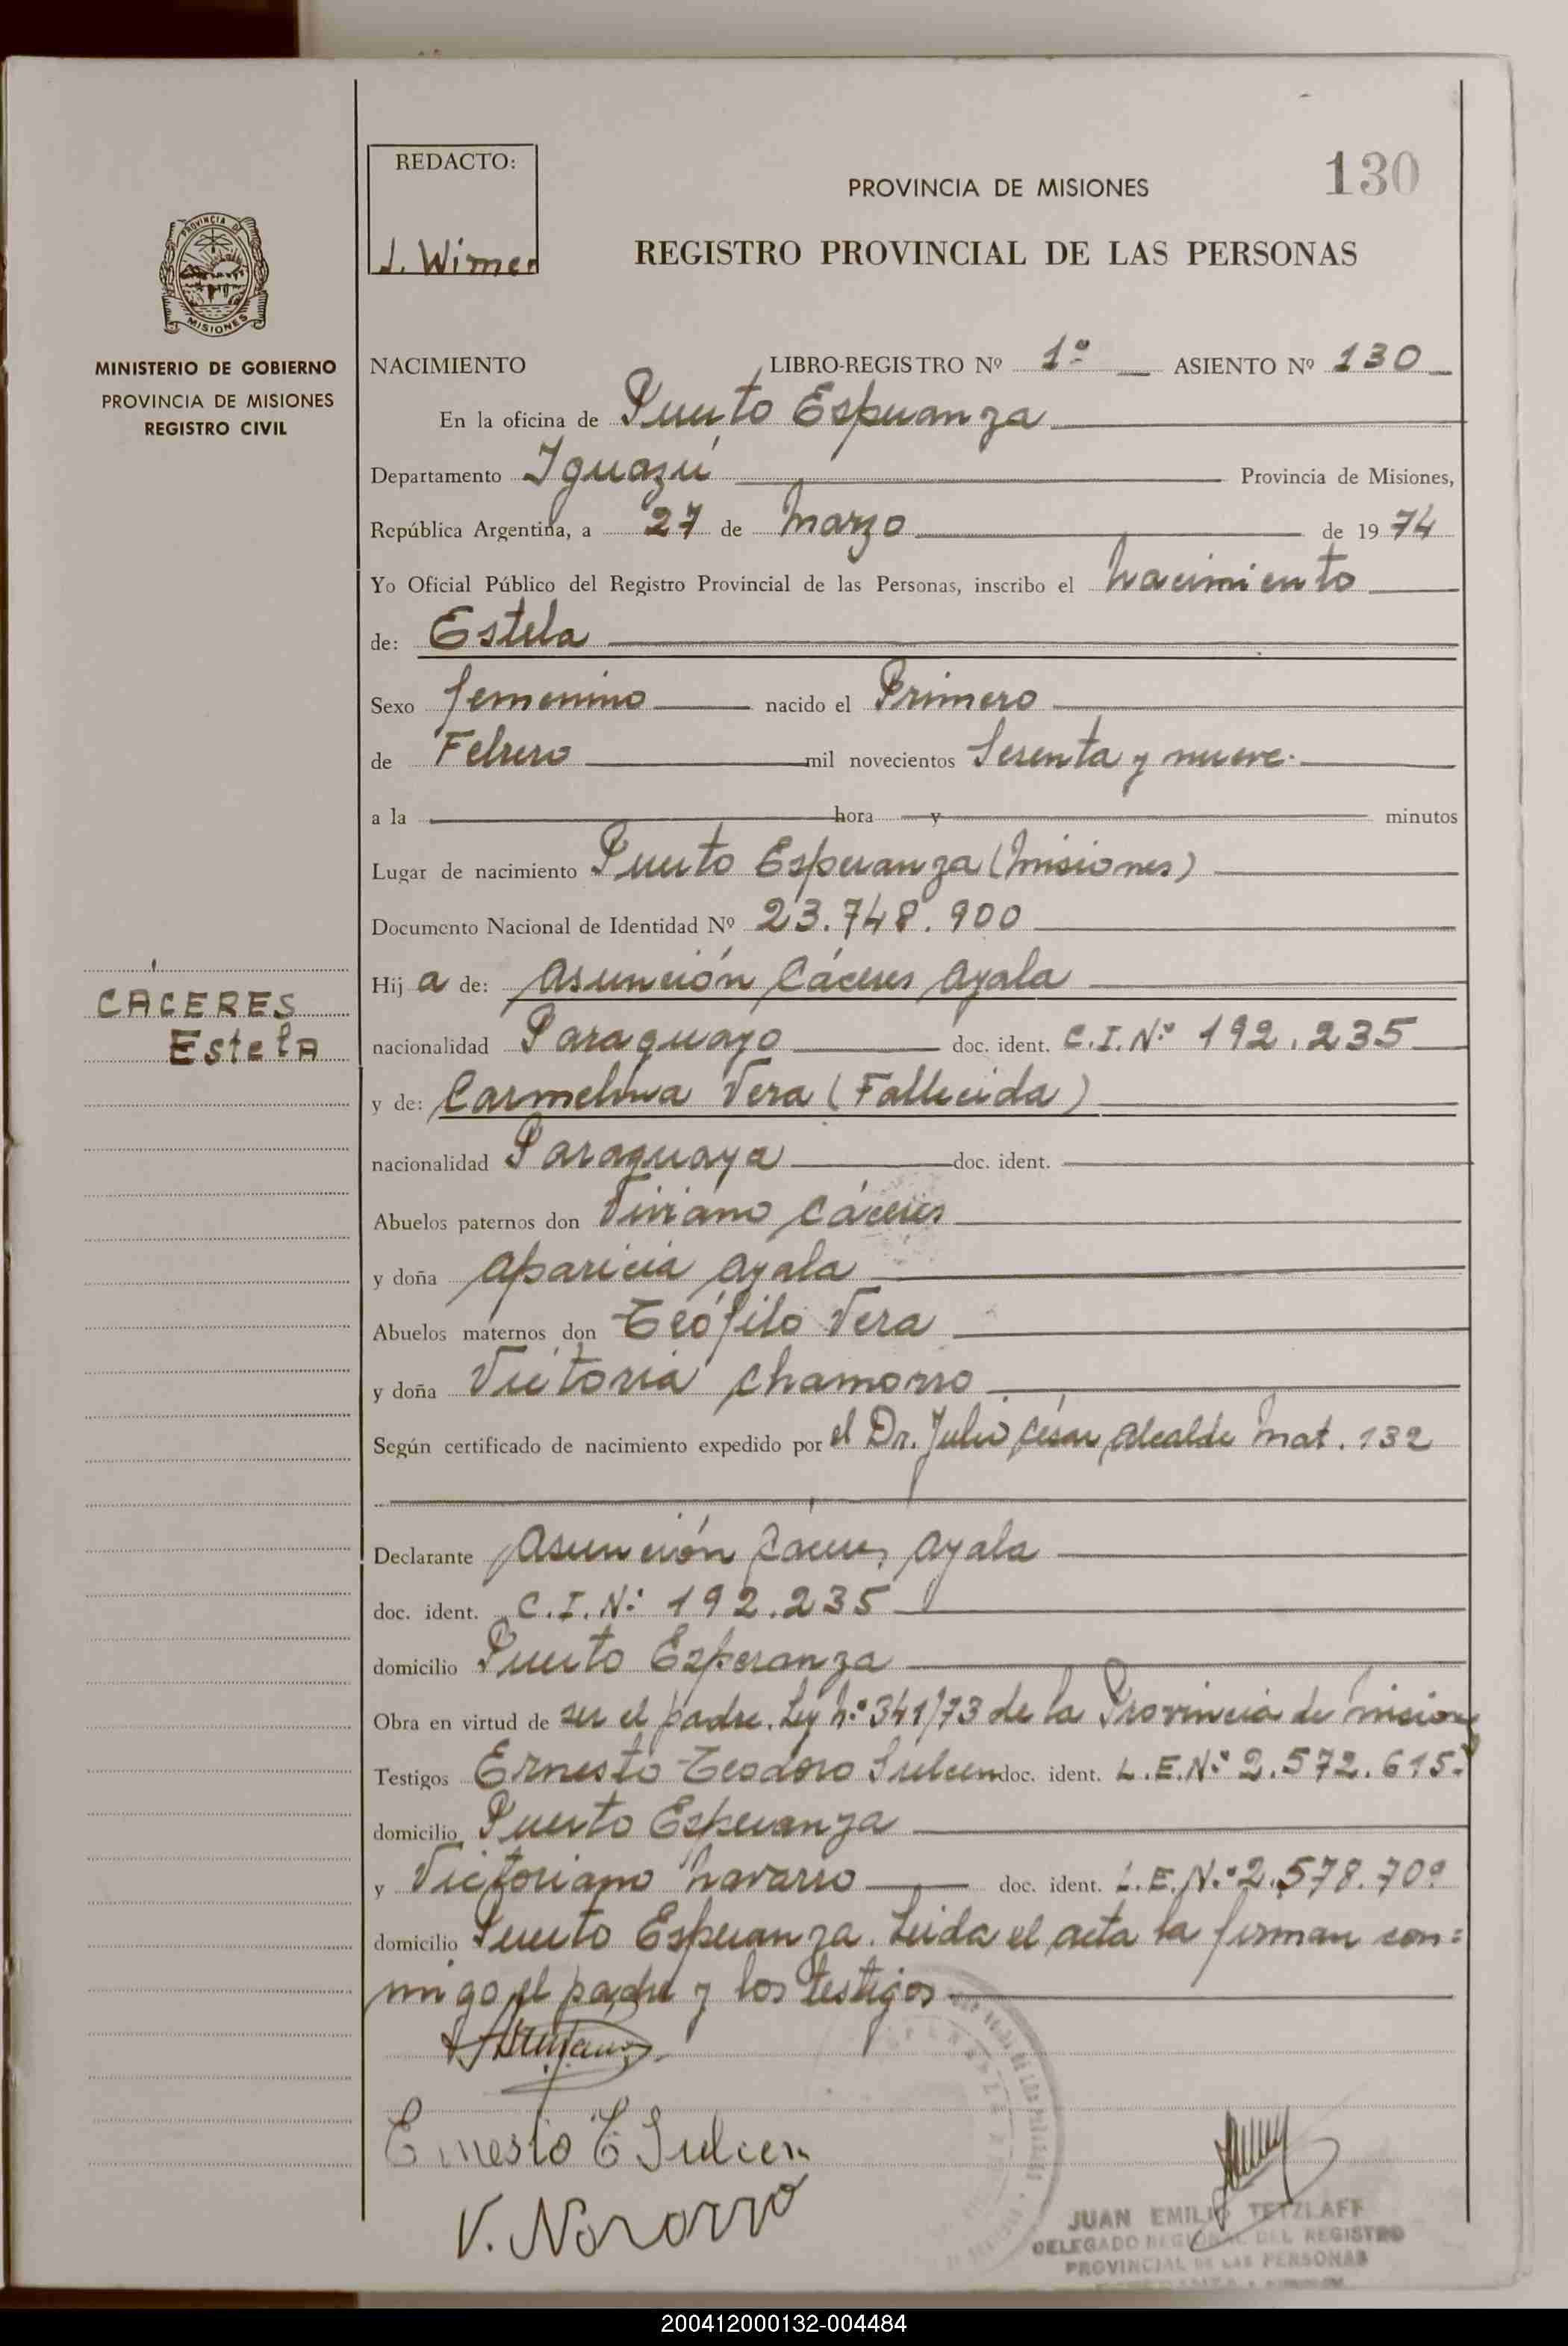 REDACTO:
J. Wimer
PROVINCIA DE MISIONES
130
REGISTRO PROVINCIAL DE LAS PERSONAS
PROVINCIA DE
MISIONES
MINISTERIO DE GOBIERNO
PROVINCIA DE MISIONES
REGISTRO CIVIL
NACIMIENTO LIBRO-REGISTRO Nº 1º ASIENTO Nº 130
En la oficina de Puerto Esperanza
Departamento Iguazú Provincia de Misiones,
República Argentina, a 27 de Marzo de 1974
Yo Oficial Público del Registro Provincial de las Personas, inscribo el Nacimiento
de: Estela
Sexo femenino nacido el Primero
de Febrero mil novecientos Sesenta y nueve.
a la hora y minutos
Lugar de nacimiento Puerto Esperanza (Misiones)
Documento Nacional de Identidad Nº 23.748.900
Hija de: Asunción Cáceres Ayala
CACERES
Estela
nacionalidad Paraguayo doc. ident. C.I.Nº 192.235
y de: Carmelina Vera (Fallecida)
nacionalidad Paraguaya doc. ident.
Abuelos paternos don Viviano Cáceres
y doña Aparicia Ayala
Abuelos maternos don Teófilo Vera
y doña Victoria Chamorro
Según certificado de nacimiento expedido por el Dr. Julio César Alcalde Mat. 132
Declarante Asunción Cáceres Ayala
doc. ident. C.I.Nº 192.235
domicilio Puerto Esperanza
Obra en virtud de ser el padre. Ley Nº 341/73 de la Provincia de Misiones
Testigos Ernesto Teodoro doc. ident. L.E.Nº 2.572.615.
domicilio Puerto Esperanza
y Victoriano Navarro doc. ident. L.E.Nº 2.578.709
domicilio Puerto Esperanza. Leída el acta la firman con=
migo el padre y los testigos
Ernesto T
V. Navarro
JUAN EMILIO TETZLAFF
DELEGADO REGIONAL DEL REGISTRO
PROVINCIAL DE LAS PERSONAS
200412000132-004484